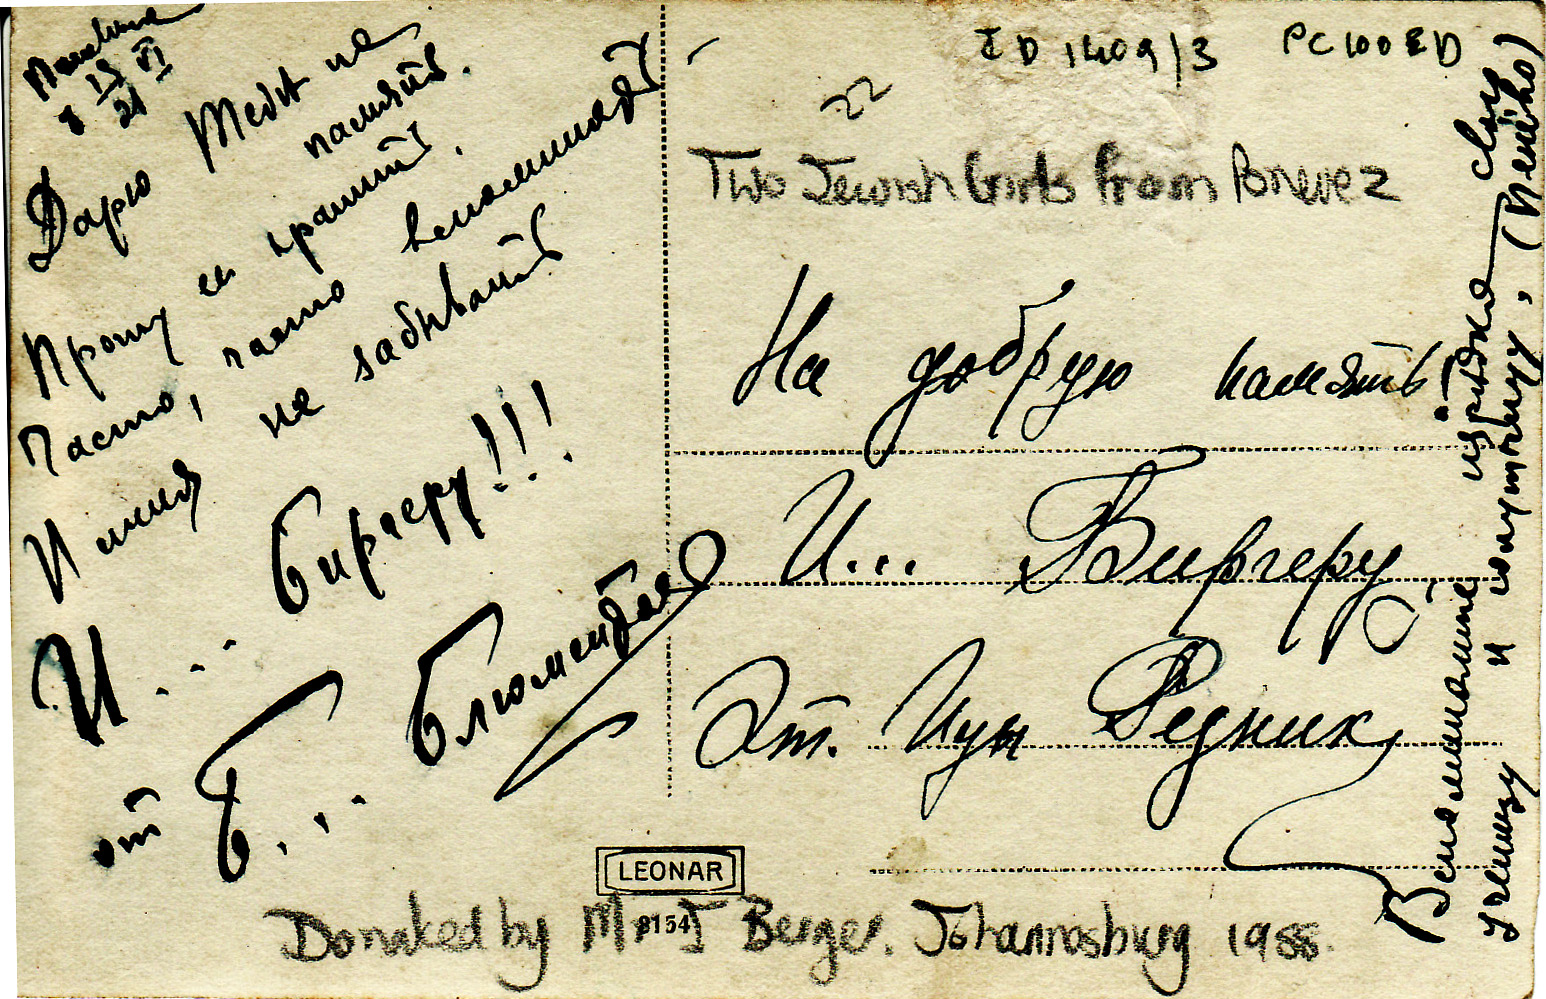 15 VI
21
Дарю тебѣ на
память.
Прошу ея хранить.
Часто, часто вспоминать
И меня не забывать
И... Биргеру!!!
от Б... Блюменталь
ID 1409/3 PC100ED
22
Two Jewish Girls from Ponevez
На добрую память
И... Биргеру
От. Редник
Вспоминайте изрѣдка свою
ученицу и спутницу,
LEONAR
8154
Donated by Mr I Berger. Johannesburg 1988.